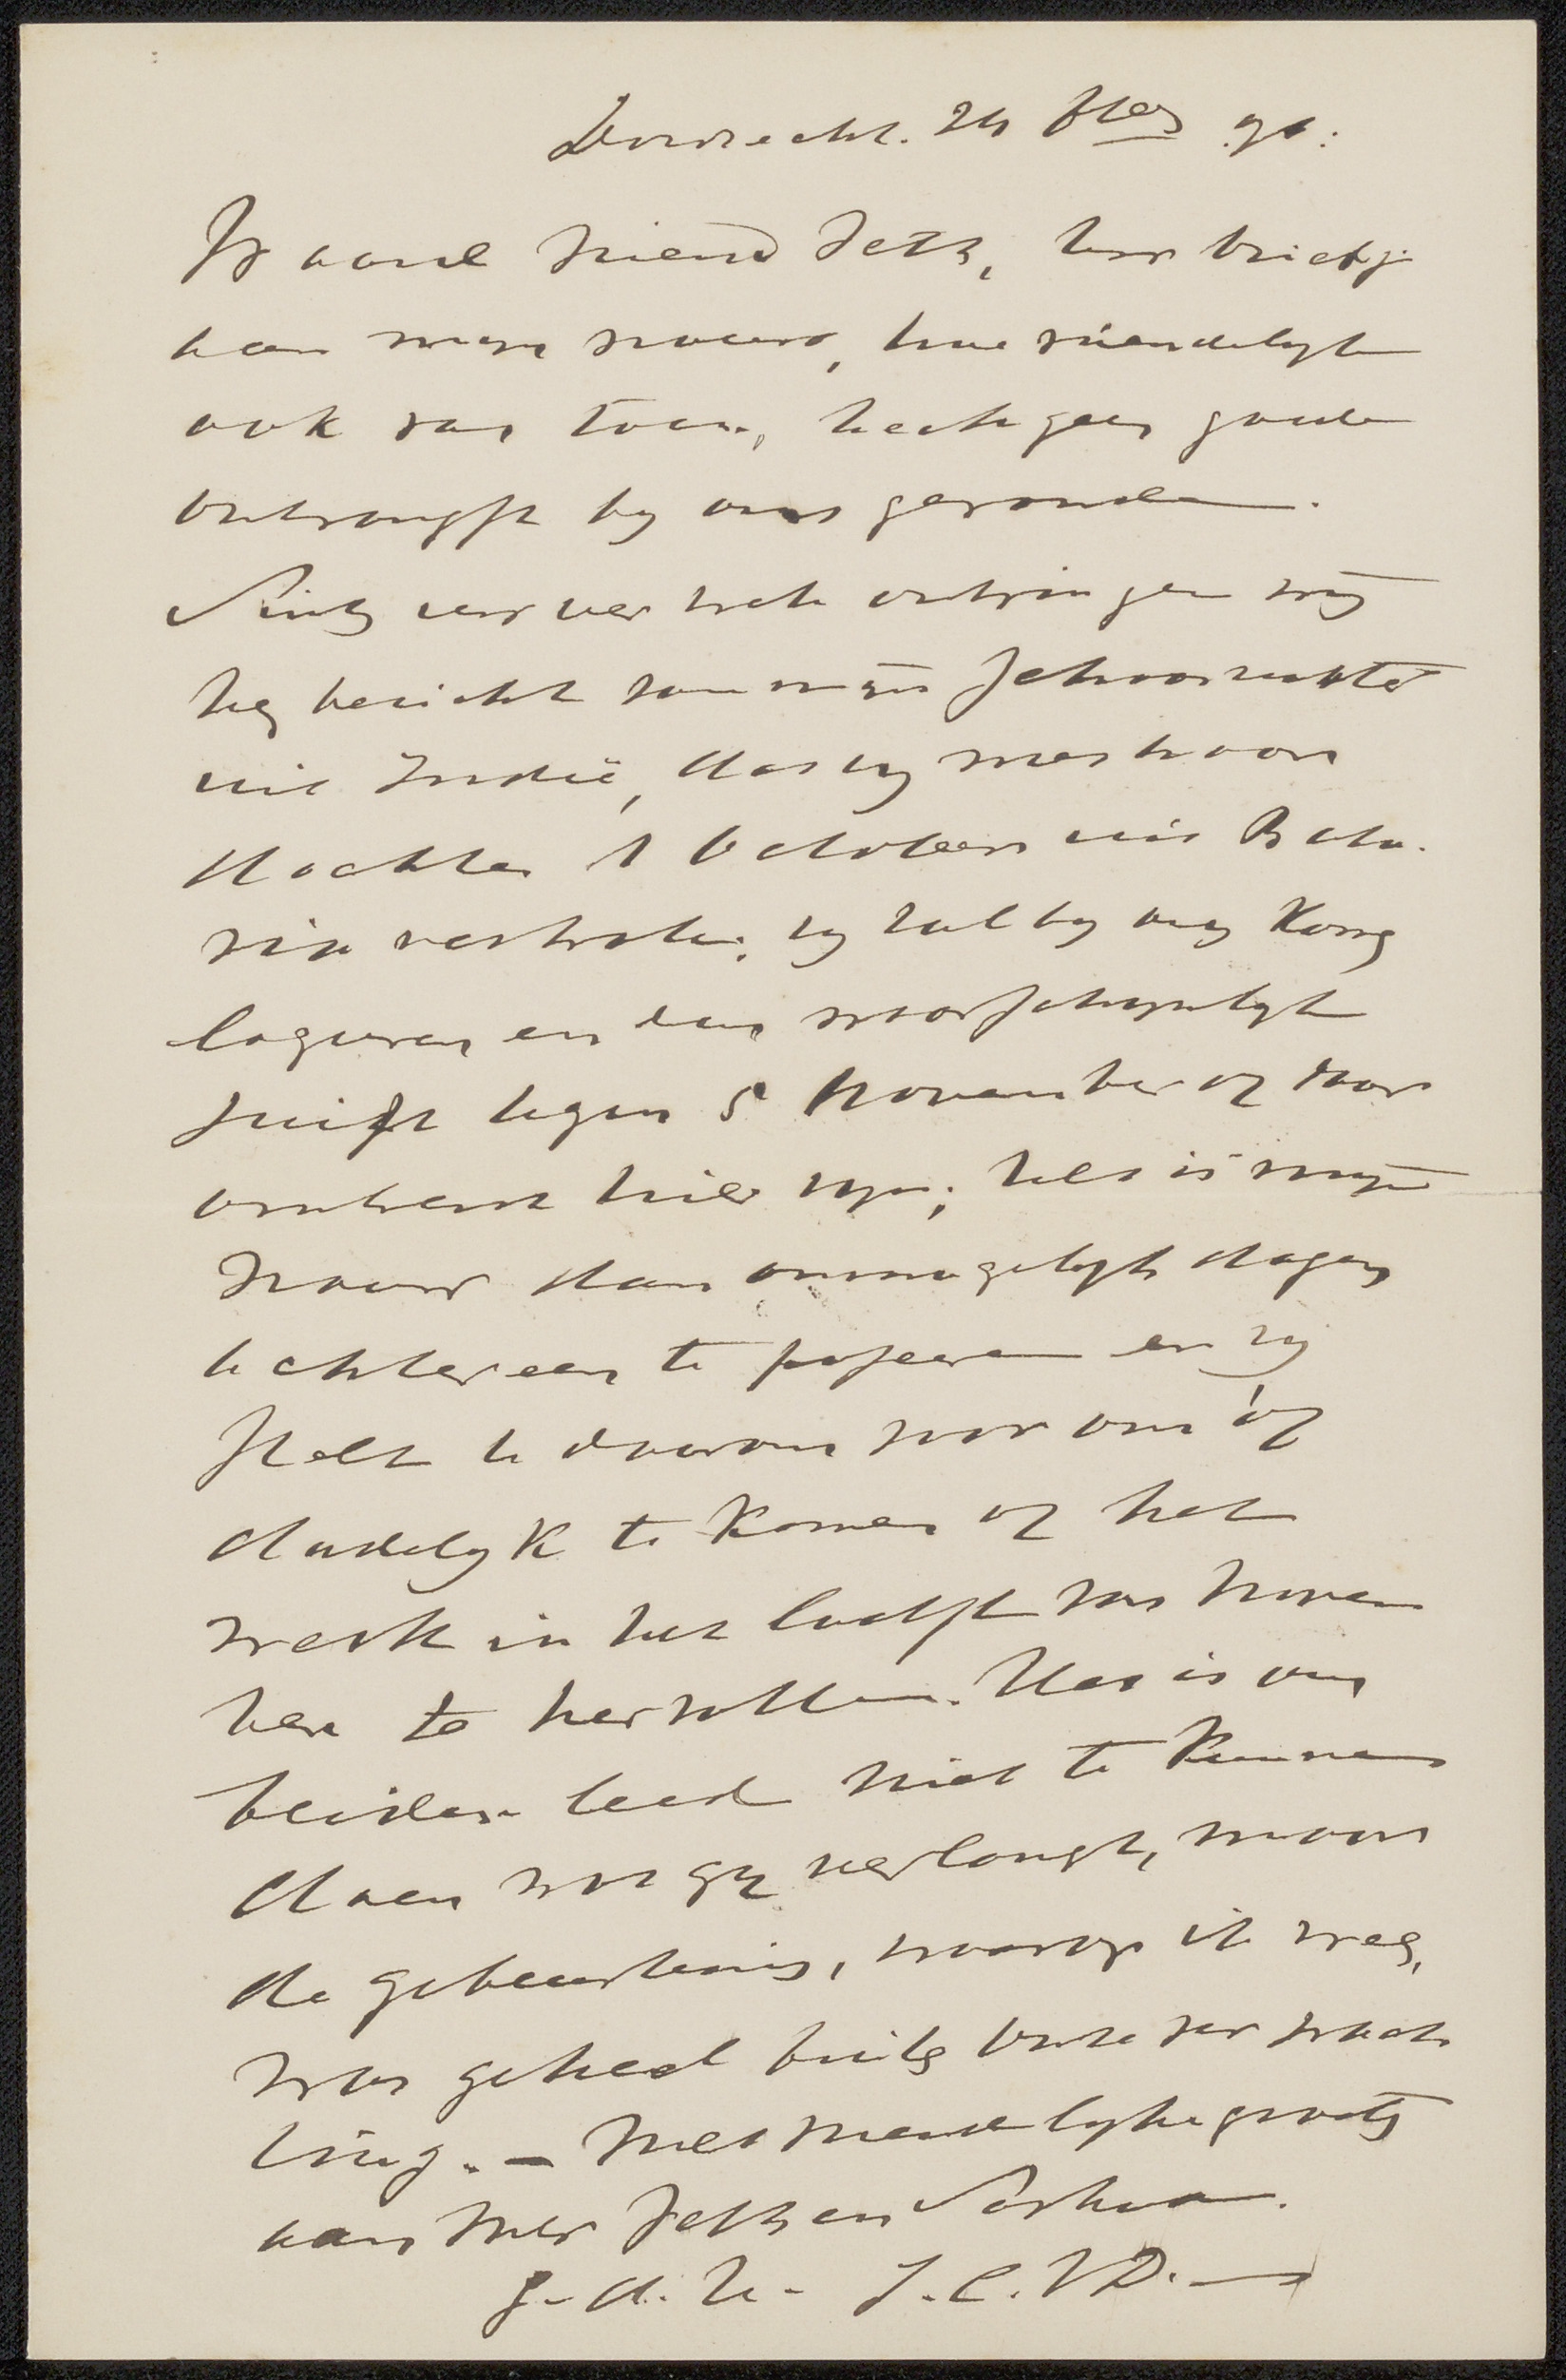 Dordrecht. 24 8ber 91.
Waarde Vriend Veth, Uw briefje
aan mijn vrouw, hoe vriendelijk
ook van toon, heeft geen goede
ontvangst bij ons gevonden.
Sints uw vertrek ontvingen wij
het bericht van mijn schoonzuster
uit Indië, dat zij met haar
dochter 1 October uit Bata-
via vertrok; zij zal bij mij komen
logeren en dan waarschijnlijk
juist tegen 5 November of daar
omtrent hier zijn; het is mijn
vrouw dan onmogelijk dagen
achtereen te poseeren en zij
stelt u daarom voor om òf
dadelijk te komen of het
werk in het laatst van Novem
ber te hervatten. Het is ons
beiden leed niet te kunnen
doen wat gij verlangt, maar
de gebeurtenis, waarop ik wees,
was geheel buiten onze verwach
ting. - Met vriendelijke groeten
aan Mevr Veth en Saskia.
t. a. U. J.C. v D.